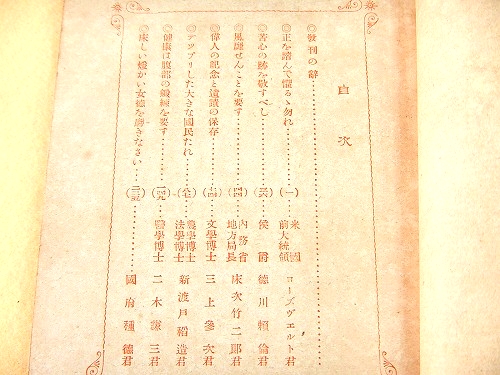 目次
◎發刊の辭
◎正を踏んで懼るゝ勿れ (一) 米國前大統領 ローズヴェルト君
◎苦心の跡を敬すべし 侯爵 德川賴倫君
◎風化せんことを要す 內務省地方局長 床次竹二郎君
◎偉人の紀念と遺蹟の保存 文學博士 三上參次君
◎デツプリした大きな國民たれ 農學博士法學博士 新渡戶稻造君
◎健康は腹部の鍛練を要す 醫學博士 二木謙三君
◎床しい嬉かい女德を磨きなさい 國府種德君